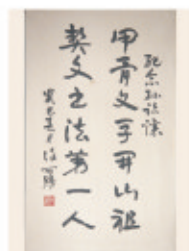 纪念孙诒让
甲骨文字开山祖
契文书法第一人
癸巳春